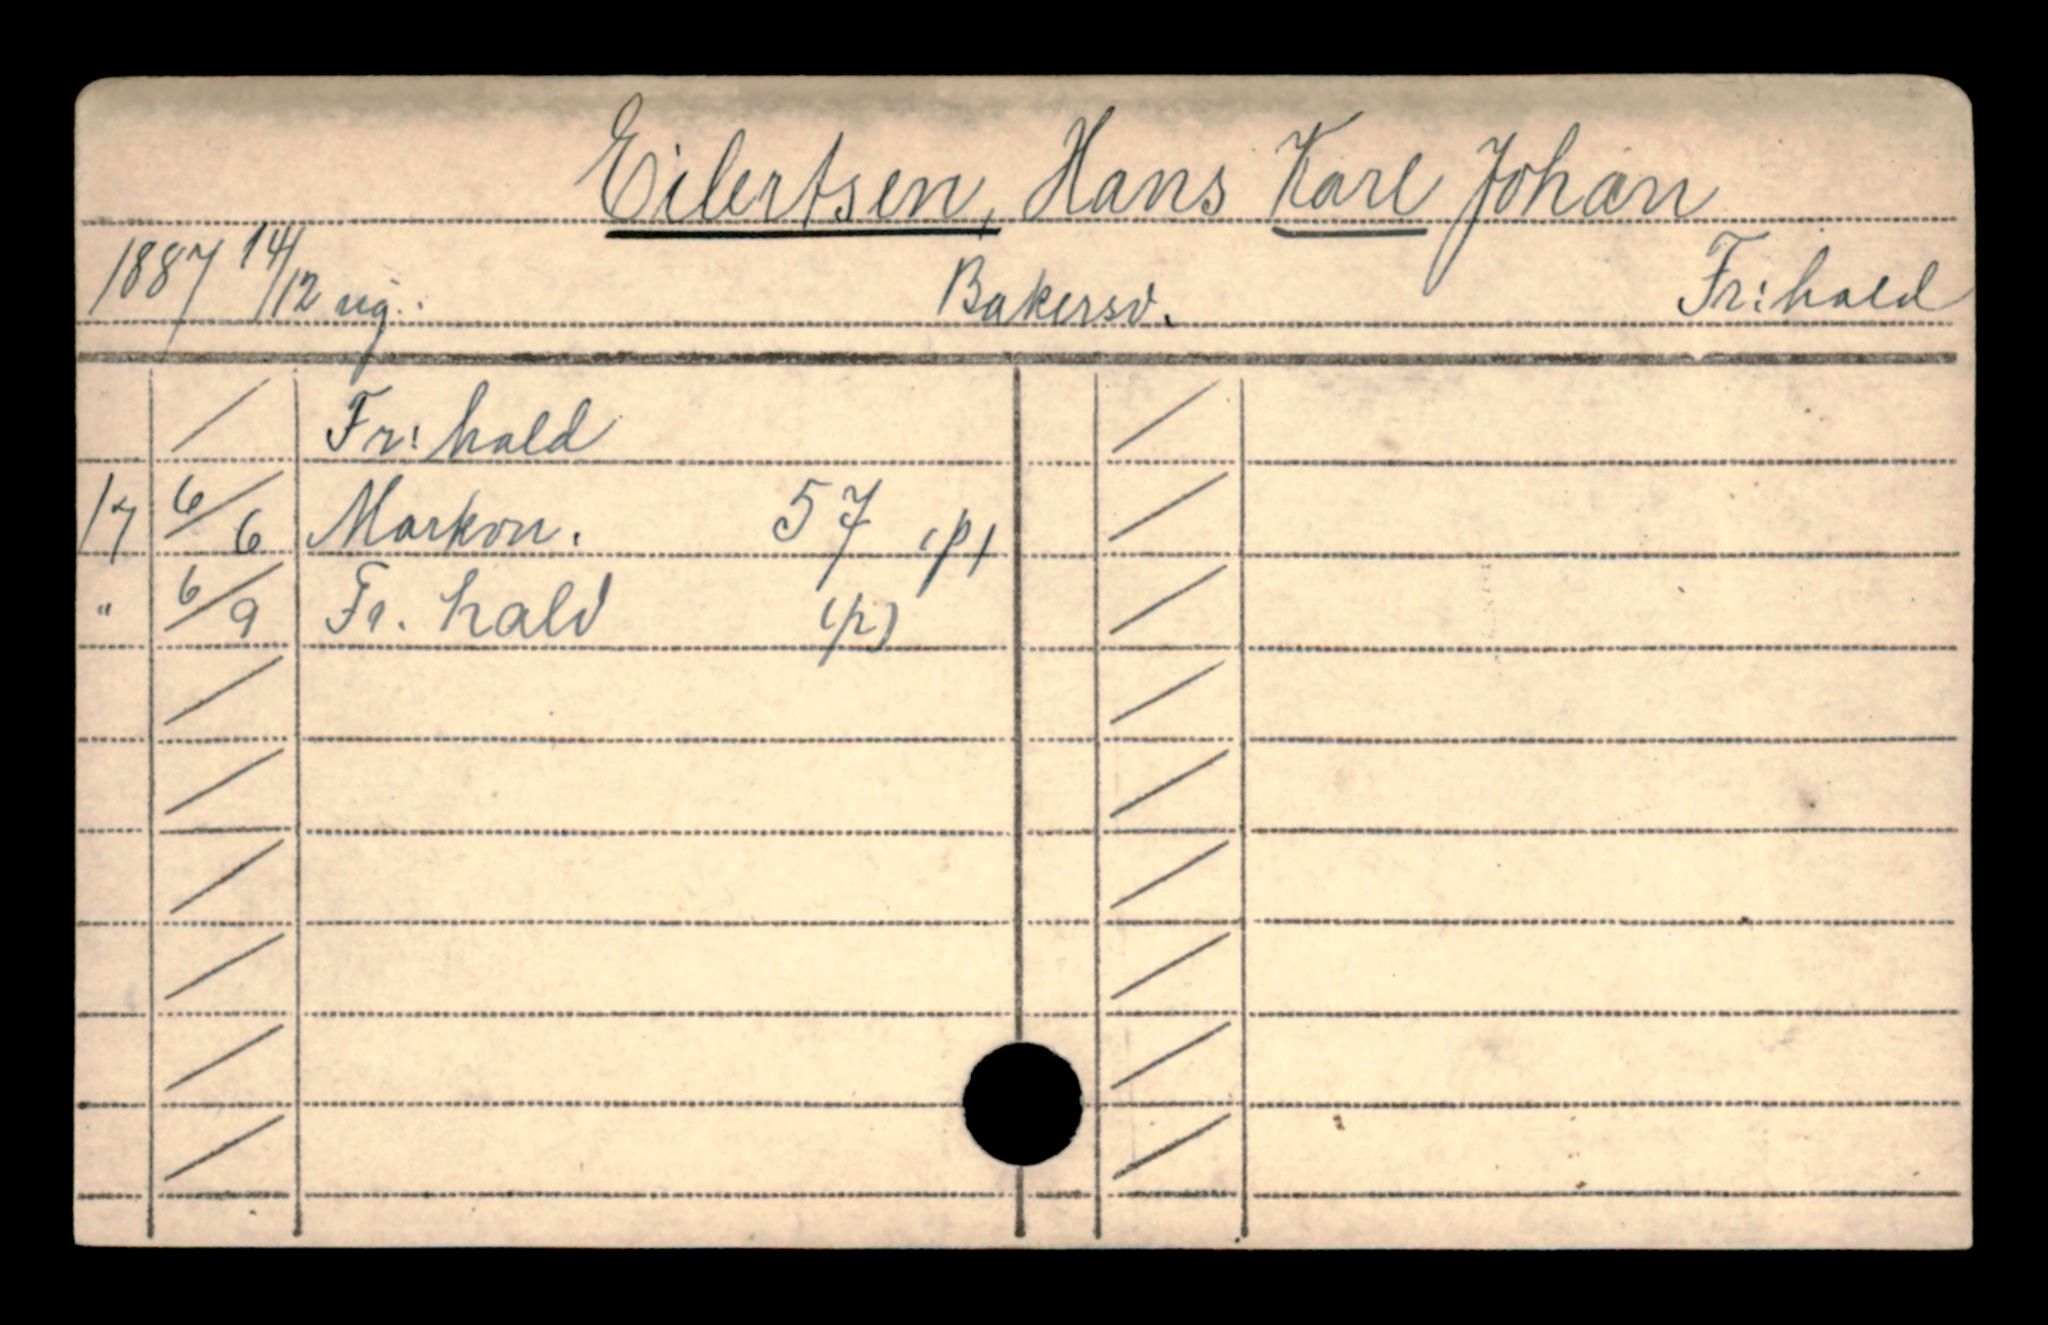 Eilertsen, Hans Karl Johan
1887 14/12 ug. Bakersv. Fr:hald
/ Fr:hald
17 6/6 Markvn. 57 (p)
" 6/9 Fr. hald (p)